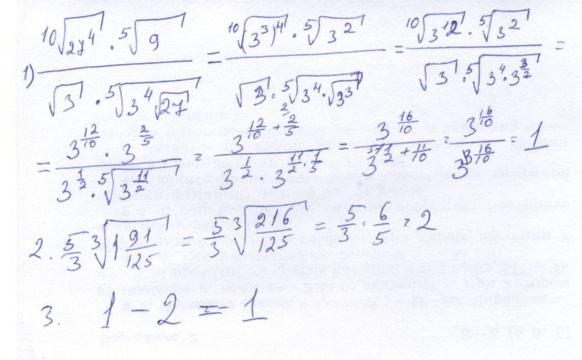 1) \frac{\sqrt[10]{27^4} \cdot \sqrt[5]{9}}{\sqrt{3} \cdot \sqrt[5]{3^4 \sqrt{27}}} = \frac{\sqrt[10]{(3^3)^4} \cdot \sqrt[5]{3^2}}{\sqrt{3} \cdot \sqrt[5]{3^4 \cdot \sqrt{3^3}}} = \frac{\sqrt[10]{3^{12}} \cdot \sqrt[5]{3^2}}{\sqrt{3} \cdot \sqrt[5]{3^4 \cdot 3^{\frac{3}{2}}}} =
= \frac{3^{\frac{12}{10}} \cdot 3^{\frac{2}{5}}}{3^{\frac{1}{2}} \cdot \sqrt[5]{3^{\frac{11}{2}}}} = \frac{3^{\frac{12}{10} + \frac{2}{5}}}{3^{\frac{1}{2}} \cdot 3^{\frac{11}{2} \cdot \frac{1}{5}}} = \frac{3^{\frac{16}{10}}}{3^{\frac{1}{2} + \frac{11}{10}}} = \frac{3^{\frac{16}{10}}}{3^{\frac{16}{10}}} = 1
2. \frac{5}{3} \sqrt[3]{1\frac{91}{125}} = \frac{5}{3} \sqrt[3]{\frac{216}{125}} = \frac{5}{3} \cdot \frac{6}{5} = 2
3. 1 - 2 = 1